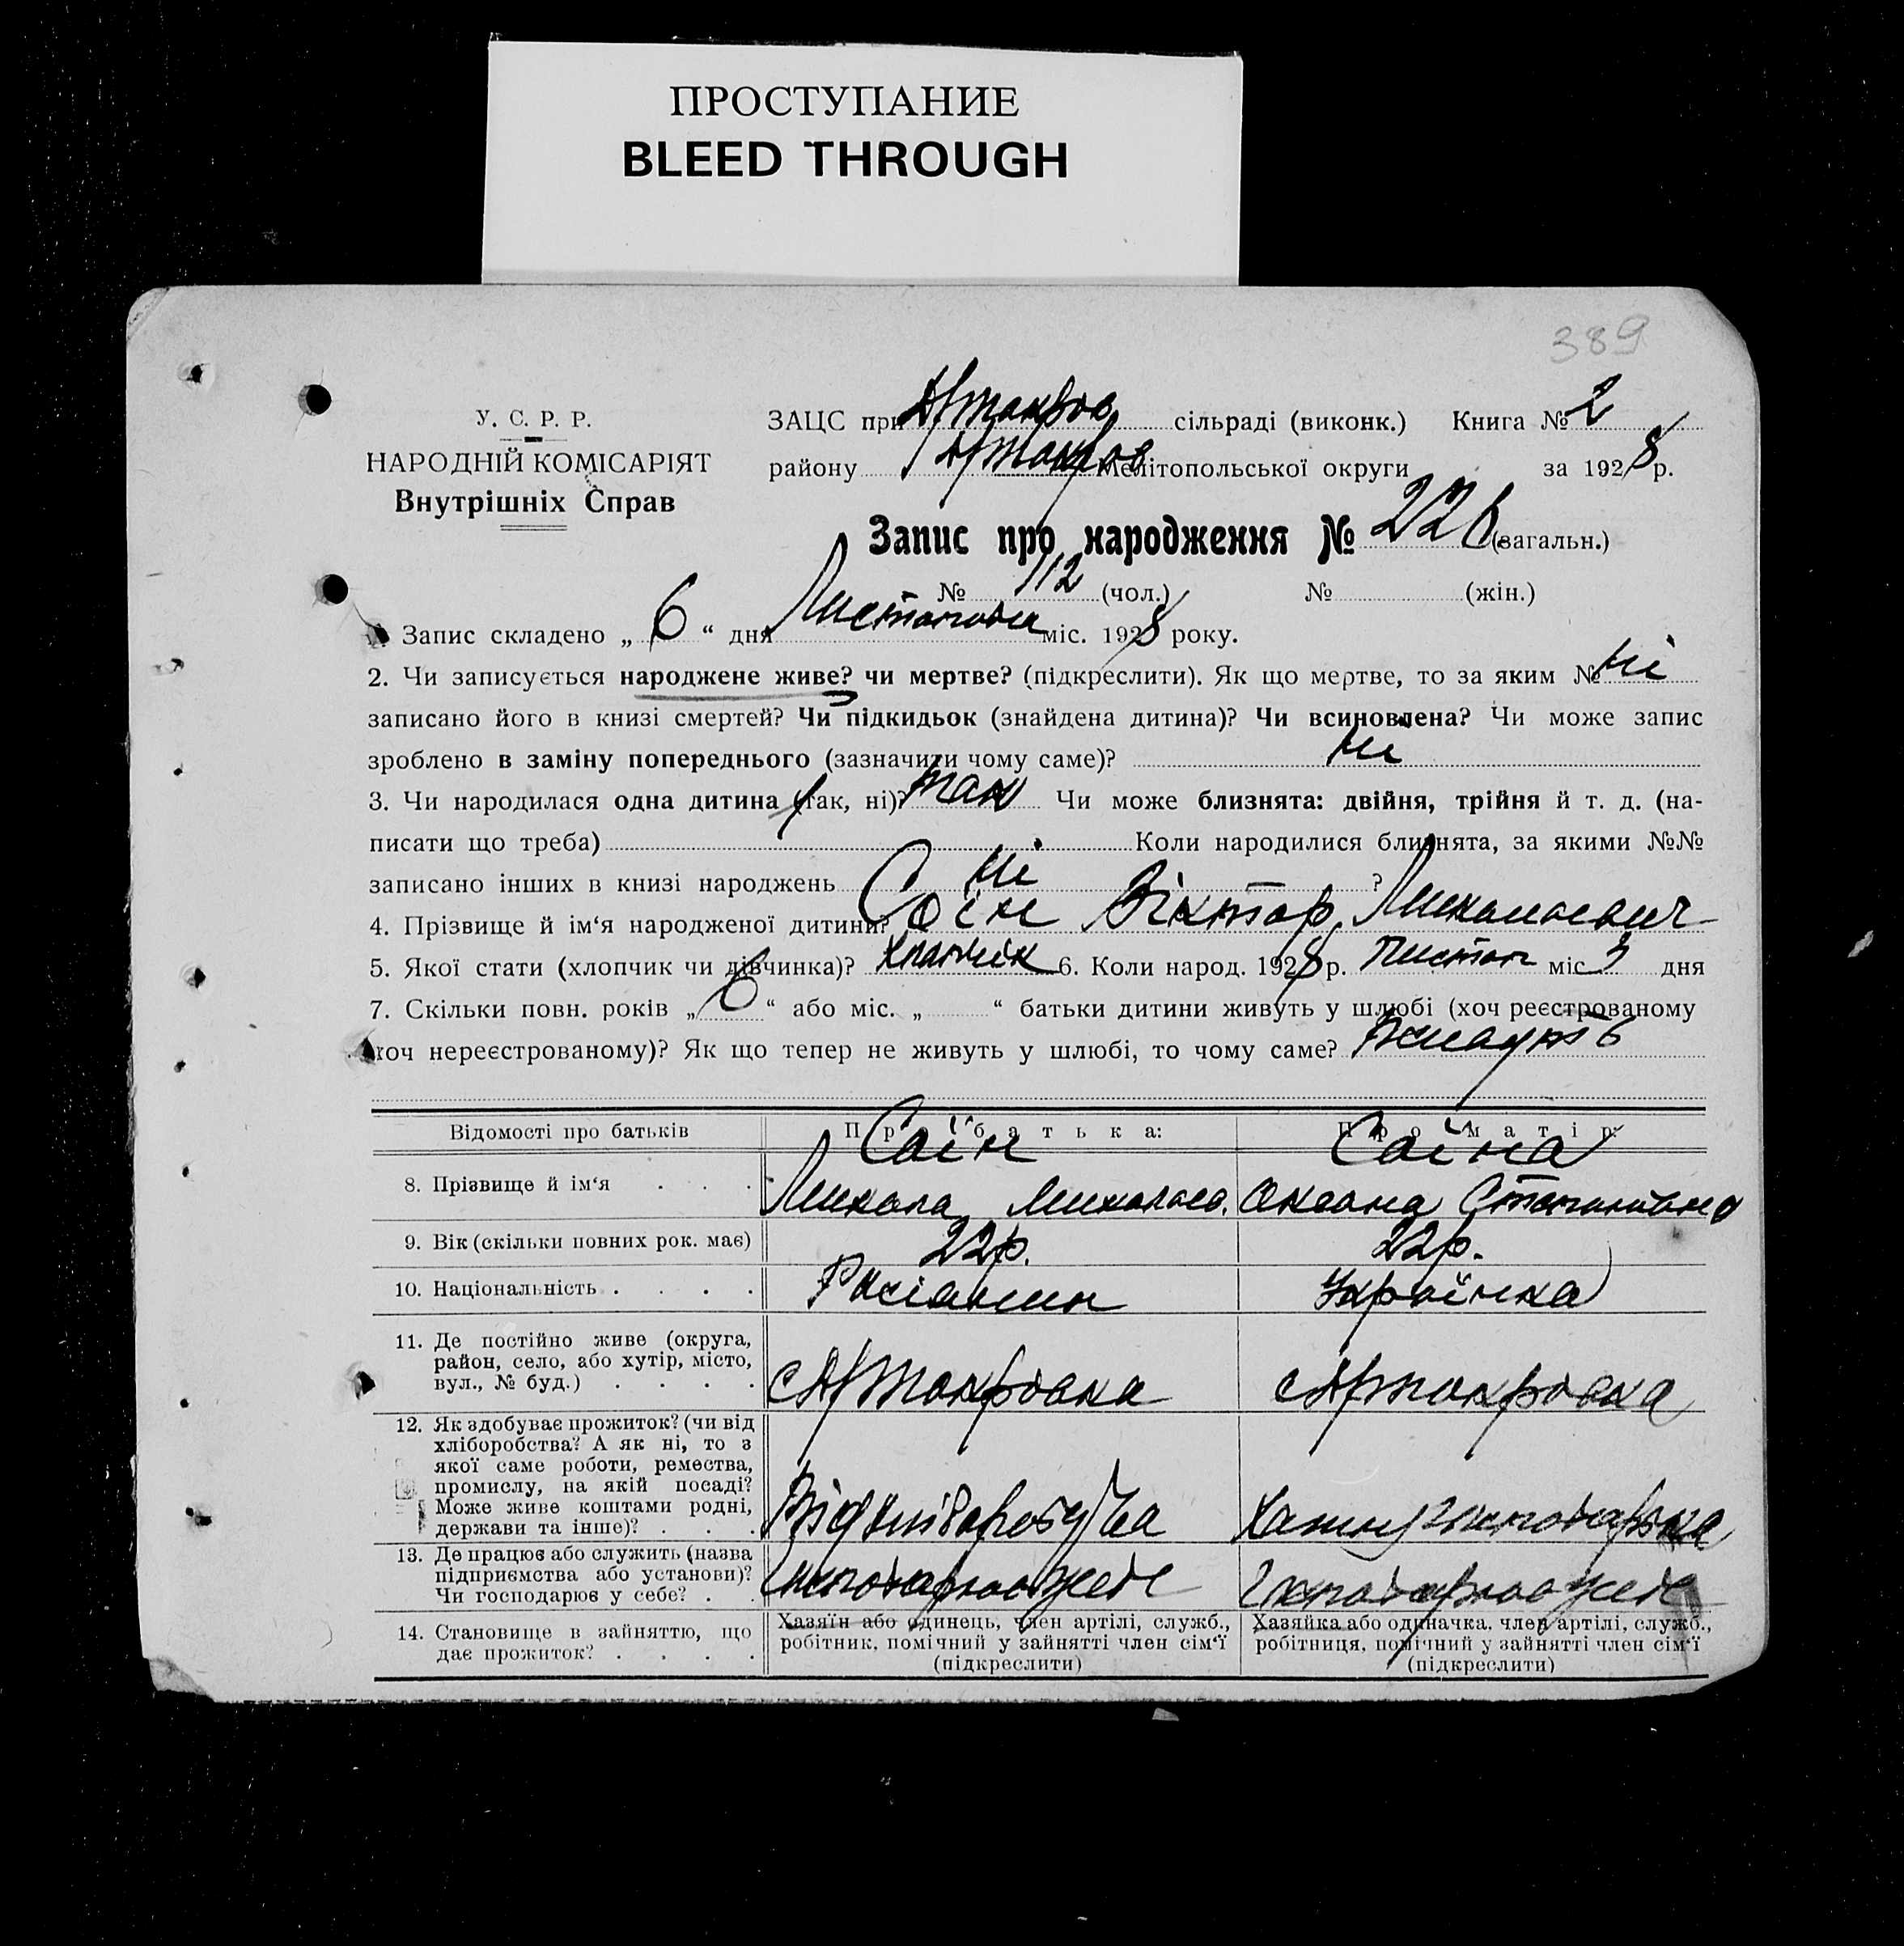 ПРОСТУПАНИЕ
BLEED THROUGH
389
У. С. Р. Р.
НАРОДНІЙ КОМІСАРІЯТ
Внутрішніх Справ
ЗАЦС при сільраді (виконк.) Книга № 2
району Мелітопольської округи за 1928 р.
Запис про народження № 226 (загальн.)
№ 112 (чол.) № (жін.)
Запис складено „ 6 “ дня Листопада міс. 1928 року.
2. Чи записується народжене живе? чи мертве? (підкреслити). Як що мертве, то за яким № ні
записано його в книзі смертей? Чи підкидьок (знайдена дитина)? Чи всиновлена? Чи може запис
зроблено в заміну попереднього (зазначити чому саме)? ні
3. Чи народилася одна дитина (так, ні)? так Чи може близнята: двійня, трійня й т. д. (на-
писати що треба) Коли народилися близнята, за якими №№
записано інших в книзі народжень ні ?
4. Прізвище й ім‘я народженої дитини? Соін Віктор Миколаевич
5. Якої стати (хлопчик чи дівчинка)? 6. Коли народ. 1928 р. Листоп міс. 3 дня
7. Скільки повн. років „ 6 “ або міс. „ “ батьки дитини живуть у шлюбі (хоч реєстрованому
хоч нереєстрованому)? Як що тепер не живуть у шлюбі, то чому саме?
Відомості про батьків Про батька: Про матір:
Соїн Соїна
8. Прізвище й ім‘я . . . Микола Миколаєв. Оксана
9. Вік (скільки повних рок. має) 22р. 22р.
10. Національність . . . . Росіанин Українка
11. Де постійно живе (округа,
район, село, або хутір, місто,
вул., № буд.) . . . .
12. Як здобуває прожиток? (чи від
хліборобства? А як ні, то з
якої саме роботи, ремества,
промислу, на якій посаді?
Може живе коштами родні,
держави та інше)? . . .
13. Де працює або служить (назва
підприємства або установи)?
Чи господарює у себе? . .
14. Становище в зайняттю, що
дає прожиток? . . . .
Хазяїн або одинець, член артілі, служб.,
робітник, помічний у зайнятті член сім‘ї
(підкреслити)
Хазяйка або одиначка. член артілі, служб.,
робітниця, помічний у зайнятті член сім‘ї
(підкреслити)